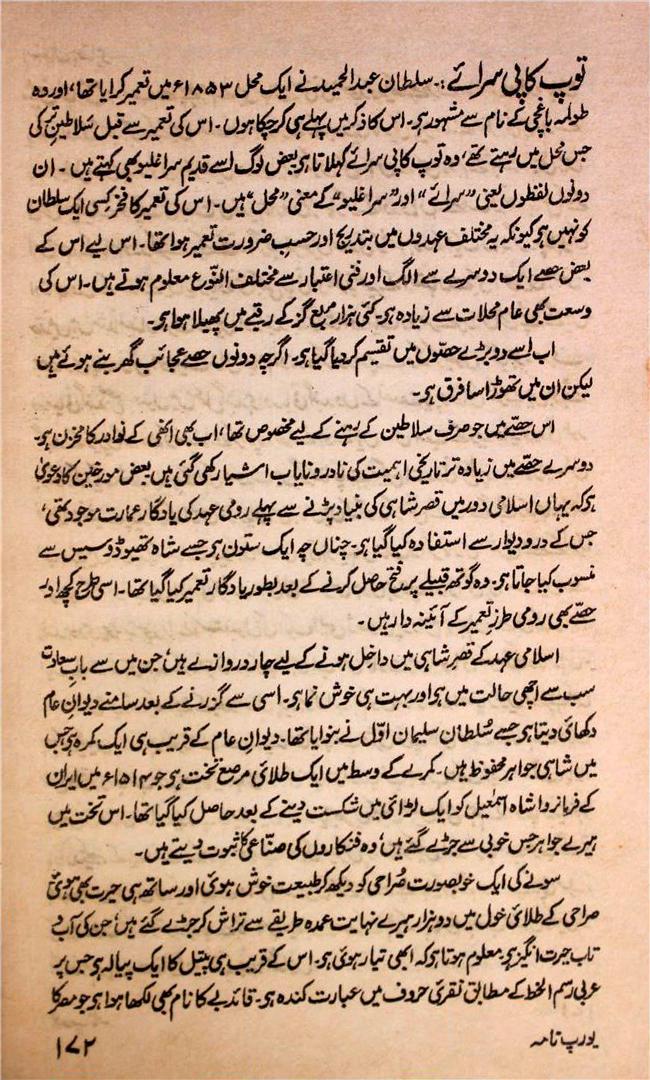 توپ کاپی سرائے :۔ سلطان عبدالحمید نے ایک محل ۱۸۵۳ء میں تعمیر کرایا تھا، اور وہ
طولمہ باغچی کے نام سے مشہور ہو۔ اس کا ذکر میں پہلے ہی کر چکا ہوں۔ اس کی تعمیر سے قبل سلاطینِ ترکی
جس محل میں رہتے تھے، وہ توپ کاپی سرائے کہلاتا ہو بعض لوگ اسے قدیم سراغلیو بھی کہتے ہیں ۔ ان
دونوں لفظوں یعنی "سرائے" اور "سراغلیو" کے معنی "محل" ہیں۔ اس کی تعمیر کا فخر کسی ایک سلطان
کو نہیں ہو کیونکہ یہ مختلف عہدوں میں بتدریج اور حسبِ ضرورت تعمیر ہوا تھا۔ اس لیے اس کے
بعض حصے ایک دوسرے سے الگ اور فنی اعتبار سے مختلف النّوع معلوم ہوتے ہیں۔ اس کی
وسعت بھی عام محلات سے زیادہ ہو۔ کئی ہزار مربع گز کے رقبے میں پھیلا ہوا ہو۔
اب اسے دو بڑے حصّوں میں تقسیم کر دیا گیا ہو۔ اگرچہ دونوں حصے عجائب گھر بنے ہوئے ہیں
لیکن ان میں تھوڑا سا فرق ہو۔
اس حصّے میں جو صرف سلاطین کے رہنے کے لیے مخصوص تھا، اب بھی انھی کے نوادر کا مخزن ہو۔
دوسرے حصّے میں زیادہ تر تاریخی اہمیت کی نادر و نایاب اشیا رکھی گئی ہیں بعض مورخین کا دعویٰ
ہو کہ یہاں اسلامی دور میں قصرِ شاہی کی بنیاد پڑنے سے پہلے رومی عہد کی یادگار عمارت موجود تھی،
جس کے در و دیوار سے استفادہ کیا گیا ہو۔ چناں چہ ایک ستون ہو جسے شاہ تھیوڈوسیس سے
منسوب کیا جاتا ہو۔ وہ گوتھ قبیلے پر فتح حاصل کرنے کے بعد بطور یادگار تعمیر کیا گیا تھا۔ اسی طرح کچھ اور
حصّے بھی رومی طرزِ تعمیر کے آئینہ دار ہیں۔
اسلامی عہد کے قصرِ شاہی میں داخل ہونے کے لیے چار دروازے ہیں، جن میں سے بابِ سعادت
سب سے اچھی حالت میں ہو اور بہت ہی خوش نما ہو۔ اسی سے گزرنے کے بعد سامنے دیوانِ عام
دکھائی دیتا ہو جسے سُلطان سلیمان اوّل نے بنوایا تھا۔ دیوانِ عام کے قریب ہی ایک کمرہ ہو جس
میں شاہی جواہر محفوظ ہیں۔ کمرے کے وسط میں ایک طلائی مرصع تخت ہو جو ۱۵۱۴ء میں ایران
کے فرمانروا شاہ اسمٰعیل کو ایک لڑائی میں شکست دینے کے بعد حاصل کیا گیا تھا۔ اس تخت میں
ہیرے جواہر جس خوبی سے جڑے گئے ہیں، وہ فنکاروں کی صنّاعی کا ثبوت دیتے ہیں۔
سونے کی ایک خوبصورت صُراحی کو دیکھ کر طبیعت خوش ہوئی اور ساتھ ہی حیرت بھی ہوئی
صراحی کے طلائی خول میں دو ہزار ہیرے نہایت عمدہ طریقے سے تراش کر جڑے گئے ہیں، جن کی آب و
تاب حیرت انگیز ہو معلوم ہوتا ہو کہ ابھی تیار ہوئی ہو۔ اس کے قریب ہی پیتل کا ایک پیالہ ہو جس پر
عربی رسم الخط کے مطابق نقرئی حروف میں عبارت کندہ ہو۔ قائد بے کا نام بھی لکھا ہوا ہو جو مصر کا
یورپ نامہ
۱۷۲